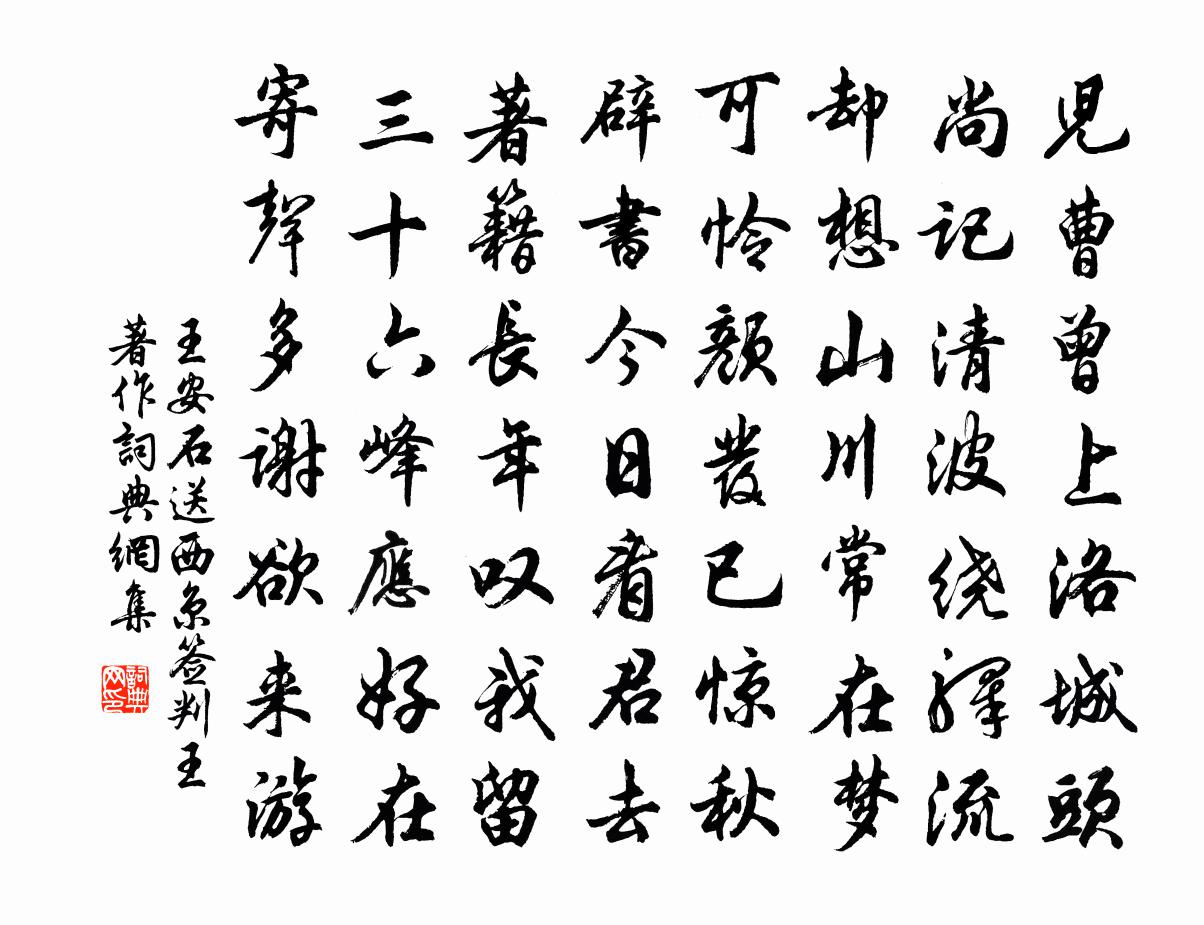 兒曹曾上洛城頭
尚記清波绕驛流
却想山川常在梦
可怜颜發已惊秋
辟書今日看君去
著籍長年叹我留
三十六峰應好在
寄聲多謝欲来游
王安石送西京签判王
著作詞典網集
詞典网印